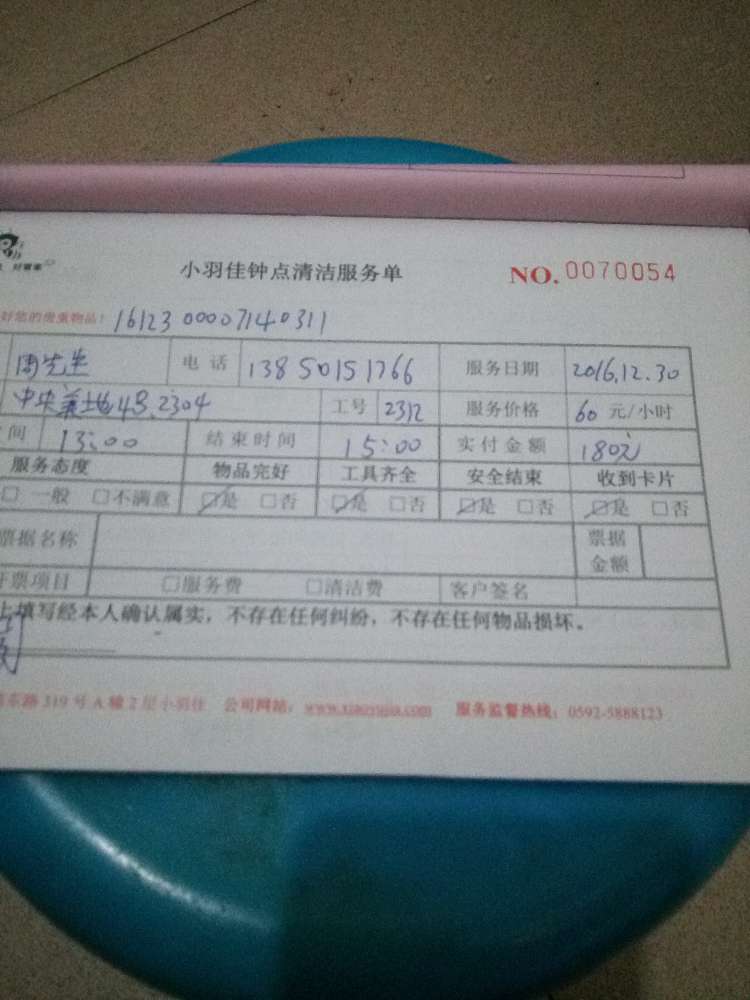 小羽佳钟点清洁服务单 NO.0070054
好您的贵重物品! 16123000071 40311
周先生 电话 13850151766 服务日期 2016.12.30
中央美地43.2304 工号 2312 服务价格 60元/小时
间 13:00 结束时间 15:00 实付金额 180元
服务态度 物品完好 工具齐全 安全结束 收到卡片
□ 一般 □不满意 ☑是 □否 ☑是 □否 ☑是 □否 ☑是 □否
票据名称 票据金额
开票项目 □服务费 □清洁费 客户签名
上填写经本人确认属实，不存在任何纠纷，不存在任何物品损坏。
东路319号A幢2层小羽佳 公司网站： 服务监督热线：0592-5888123